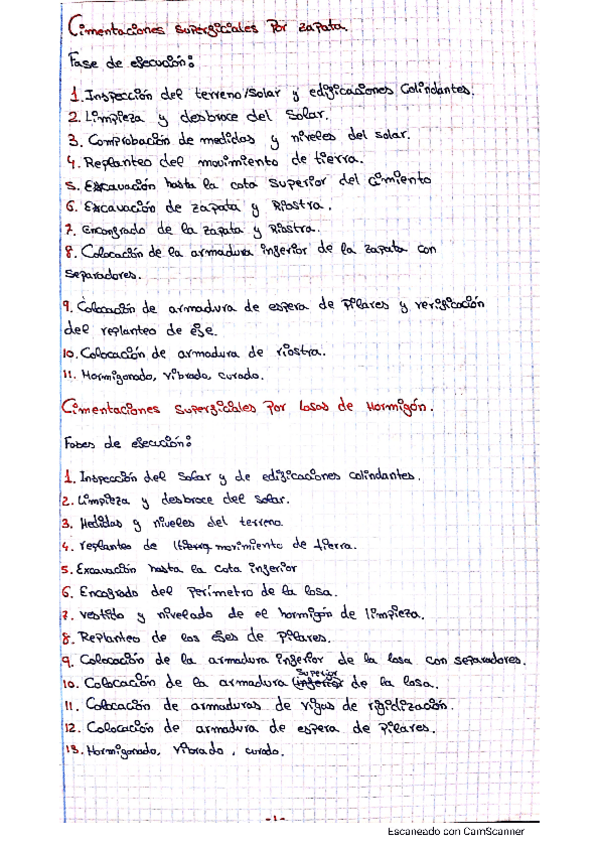 Cimentaciones superficiales por zapata.
Fase de ejecución:
1. Inspección del terreno/solar y edificaciones colindantes.
2. Limpieza y desbroce del solar.
3. Comprobación de medidas y niveles del solar.
4. Replanteo del movimiento de tierra.
5. Excavación hasta la cota superior del cimiento
6. Excavación de zapata y Riostra.
7. Encongrado de la zapata y Riastra.
8. Colocación de la armadura inferior de la zapata con
separadores.
9. Colocación de armadura de espera de pilares y verificación
del replanteo de eje.
10. Colocación de armadura de riostra.
11. Hormigonado, vibrado, curado.
Cimentaciones superficiales por losas de Hormigón.
Fases de ejecución:
1. Inspección del solar y de edificaciones colindantes.
2. Limpieza y desbroce del solar.
3. Medidas y niveles del terreno.
4. replanteo de movimiento de tierra.
5. Excavación hasta la cota inferior
6. Encofrado del perímetro de la losa.
7. vestido y nivelado de el hormigón de limpieza.
8. Replanteo de los ejes de pilares.
9. Colocación de la armadura inferior de la losa con separadores.
10. Colocación de la armadura superior de la losa.
11. Colocación de armaduras de vigas de rigidización.
12. Colocación de armadura de espera de pilares.
13. Hormigonado, vibrado, curado.
-1-
Escaneado con CamScanner